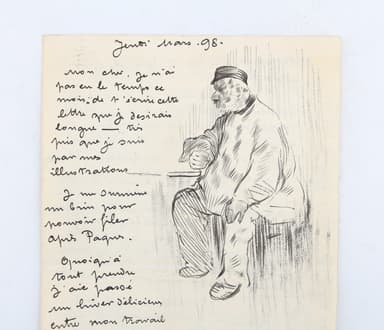 Jeudi Mars. 98.
Mon cher, Je n'ai
pas eu le temps ce
mois, de t'écrire cette
lettre que je désirais
longue — très
pris que je suis
par mes
illustrations
Je me surmène
un brin pour
pouvoir filer
après Pâques.
Quoiqu'à
tout prendre
j'aie passé
un hiver délicieux
entre mon travail